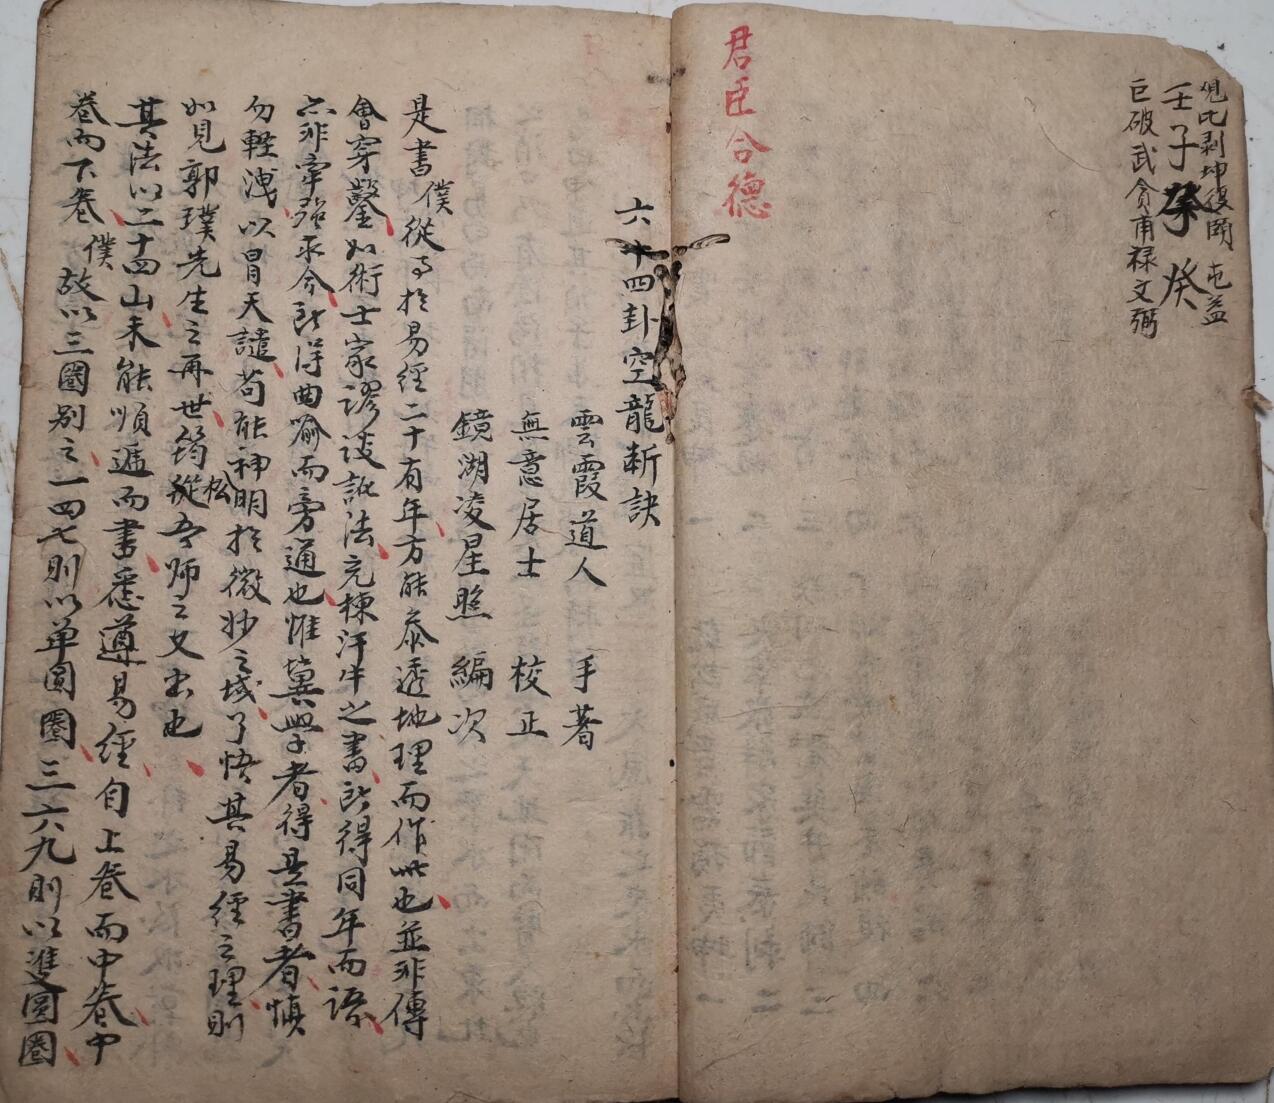 觀比剥坤復頤 屯益
壬子癸 癸
巨破武貪甫禄文弼
君臣合德
六十四卦空龍斷訣
雲霞道人 手著
無意居士 校正
鏡湖凌星照 編次
是書僕從事於易經二十有年方能參透地理而作此也並非傳
會穿鑿如術士家謬談訛法充棟汗牛之書所得同年而語
亦非牽強平今所得曲喻而旁通也惟冀學者得是書者慎
勿輕洩以冒天譴苟能神明於微妙之域了悟其易經之理則
如見郭璞先生之再世筠松從吾師之又出也
其法以二十四山未能順遞而書悉遵易經自上卷而中卷中
卷而下卷僕故以三圈別之一四七則以单圓圈三六九則以雙圓圈